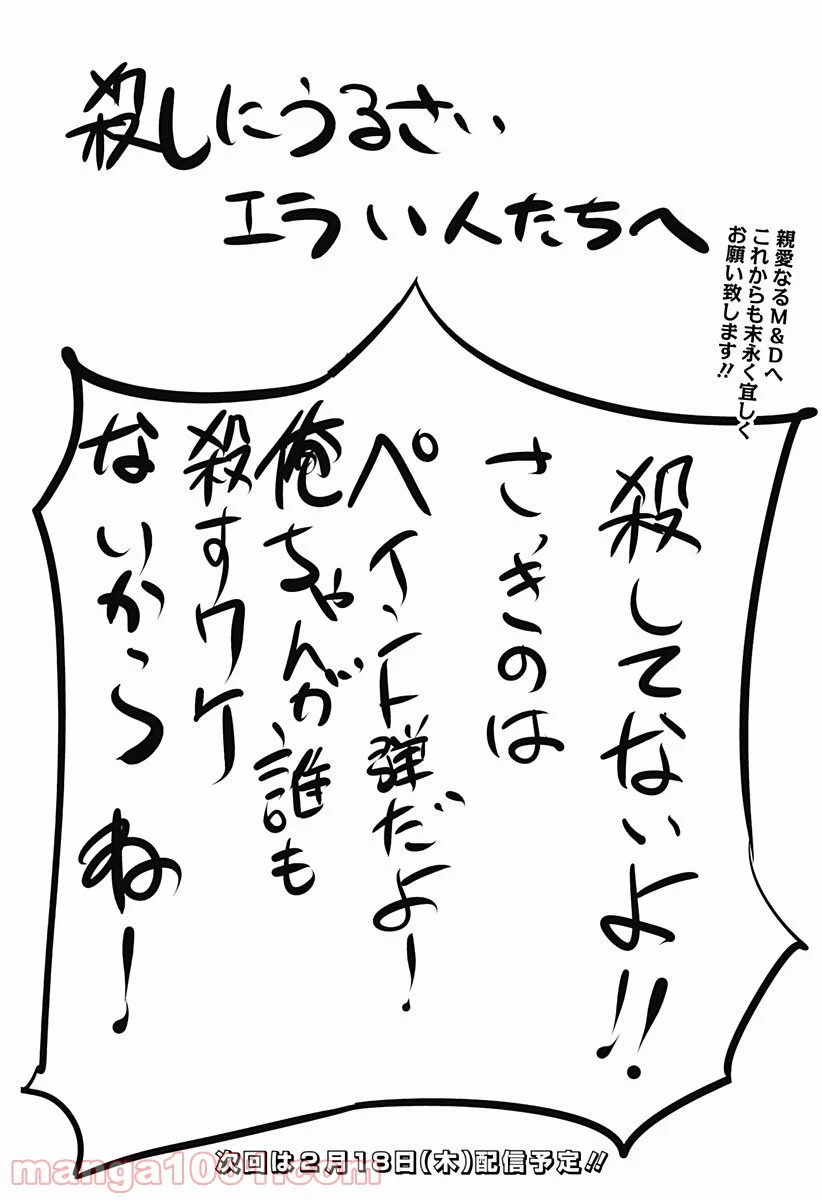 殺しにうるさい
エラい人たちへ
親愛なるM&Dへ
これからも末永く宜しく
お願い致します!!
殺してないよ!!
さっきのは
ペイント弾だよー
俺ちゃんが誰も
殺すワケ
ないからねー
次回は2月18日(木)配信予定!!
manga1001.com